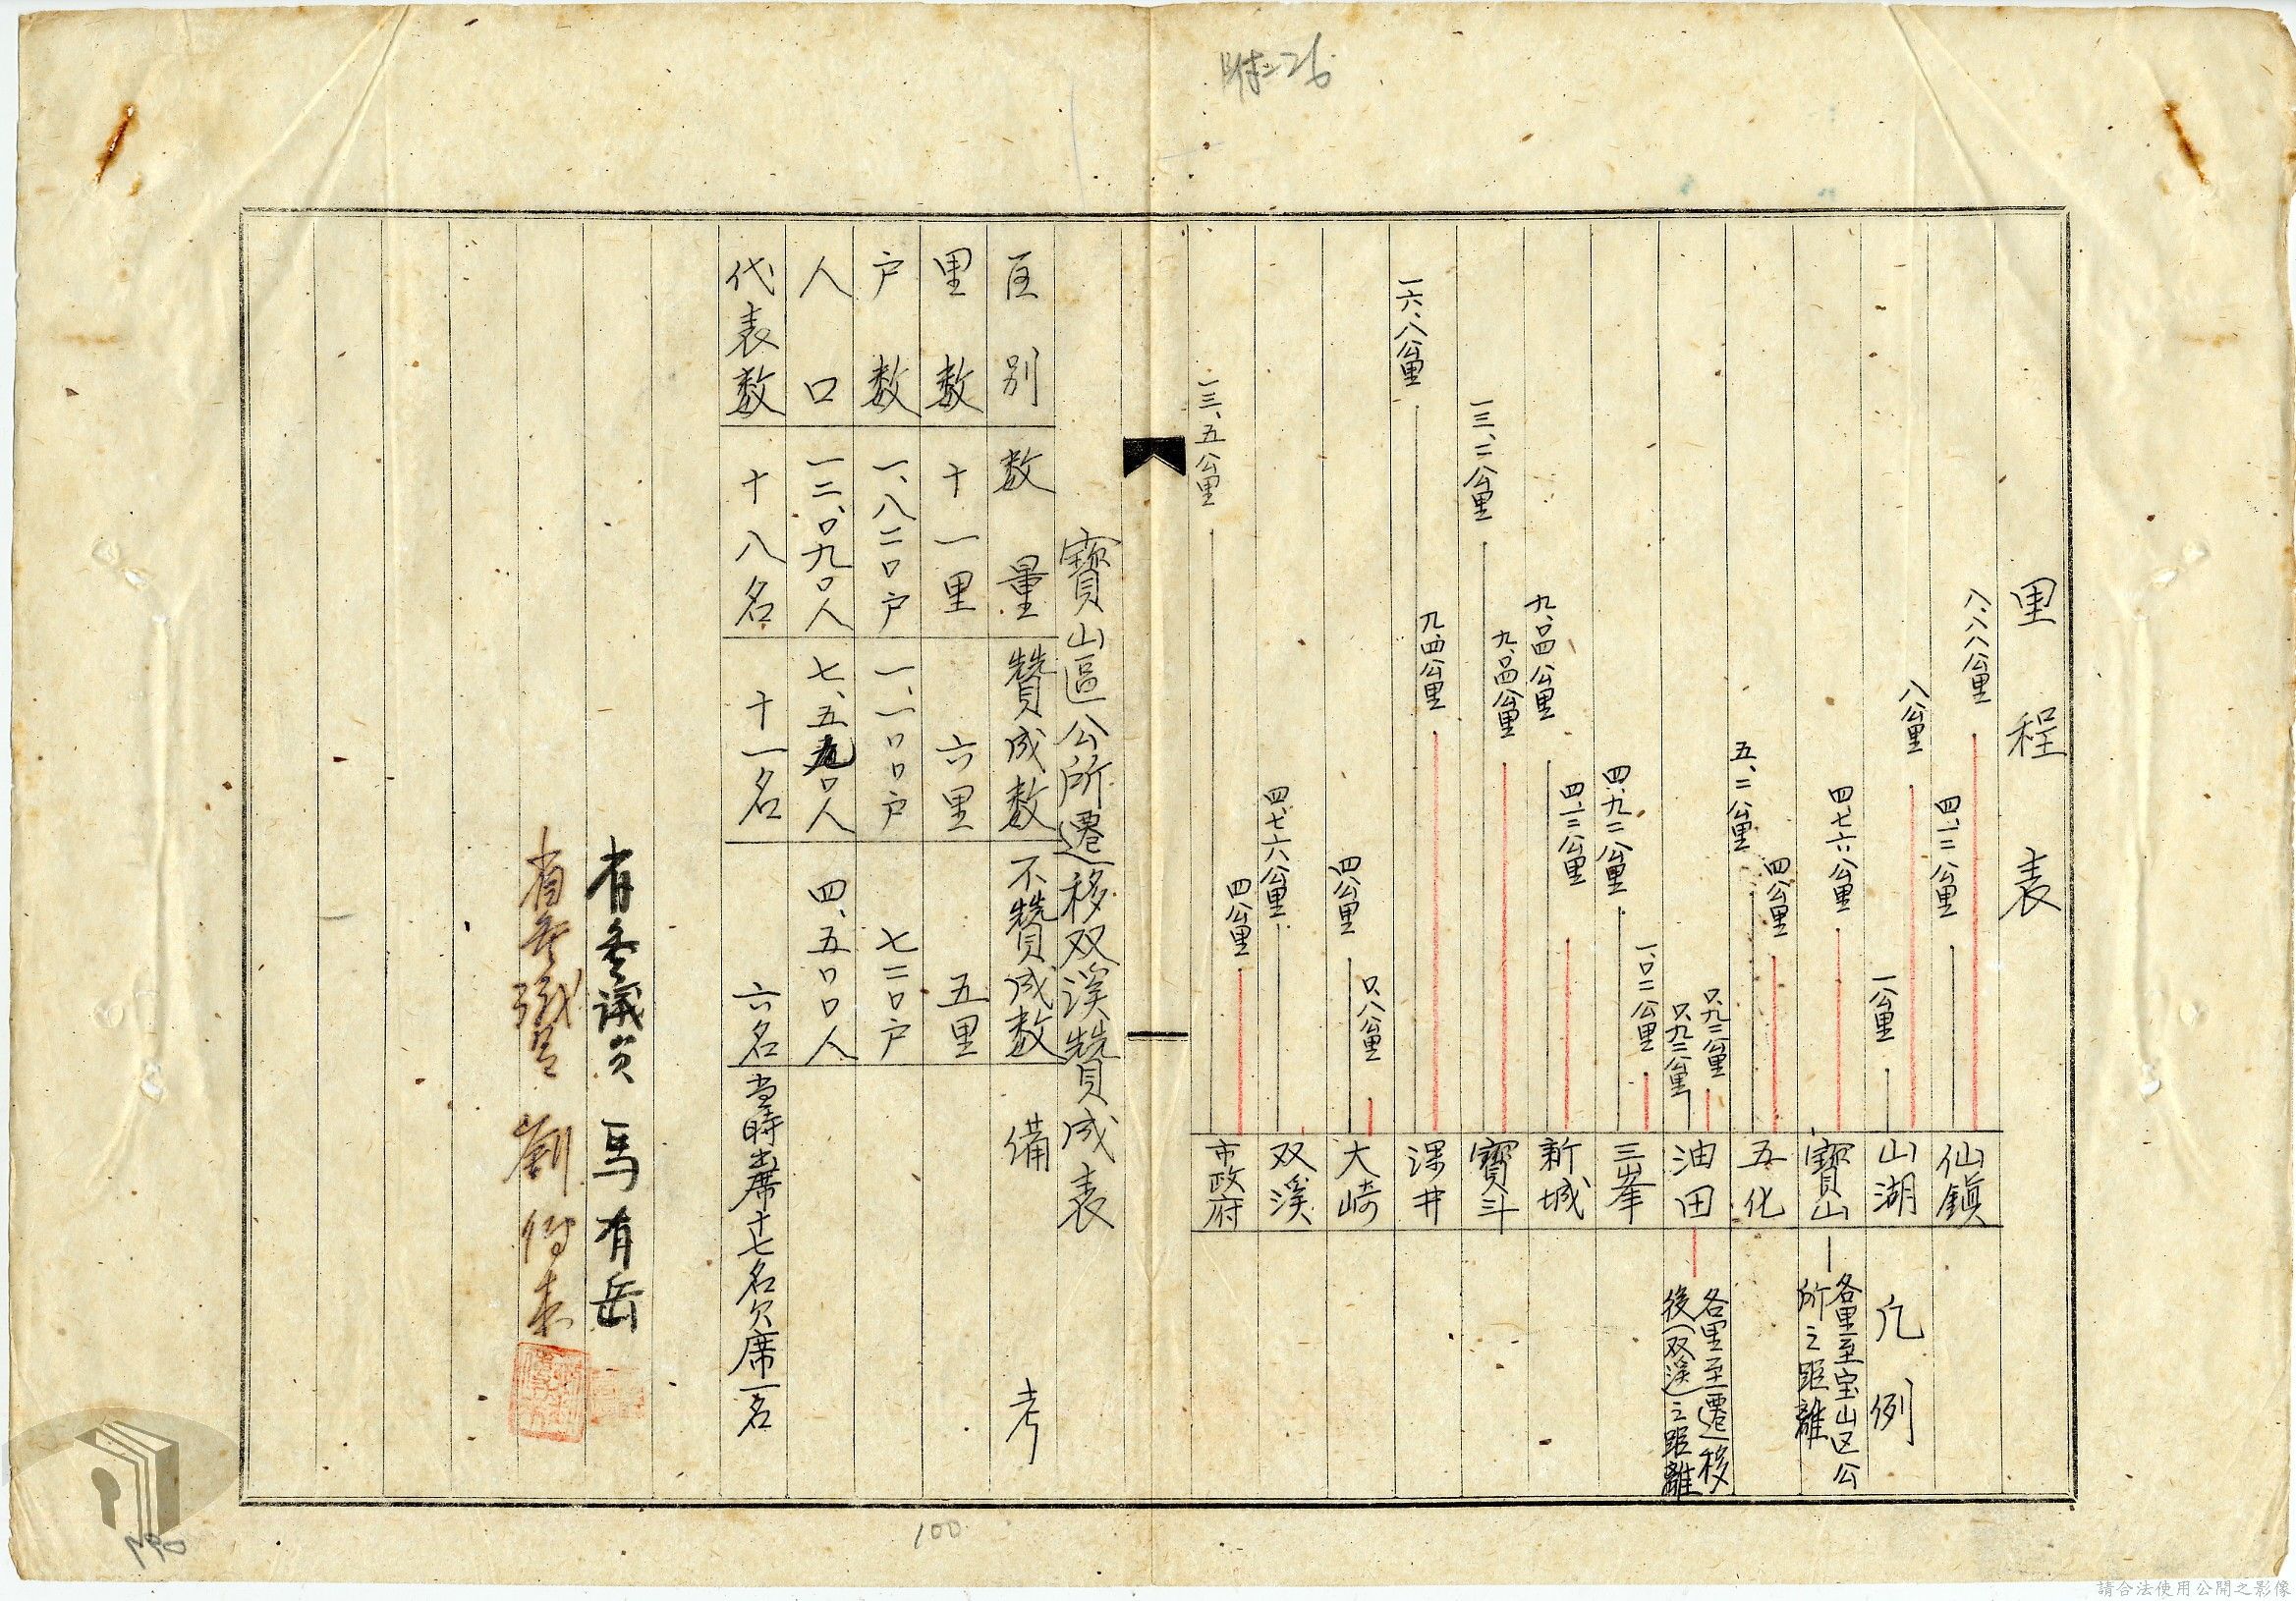 附26
里程表
八.八八公里
四.一二公里
仙鎮
八公里
一公里
山湖
凡例
四.七六公里
寶山
各里至宝山区公
所之距離
五.二公里
四公里
五化
〇.九二公里
〇.九二公里
油田
各里至遷移
後(双溪)之距離
四.九二公里
一.〇二公里
三峯
九.〇四公里
四.一二公里
新城
一三.二公里
九.〇四公里
寶斗
一六.八公里
九.四公里
深井
四公里
〇.八公里
大崎
四.七六公里
双溪
一三.五公里
四公里
市政府
寶山區公所遷移双溪贊成表
区別 数量 贊成数 不贊成数 備考
里数 十一里 六里 五里
户数 一、八二〇户 一、一〇〇户 七二〇户
人口 一二、〇九〇人 七、五九〇人 四、五〇〇人
代表数 十八名 十一名 六名 当時出席十七名欠席一名
省参議員 馬有岳